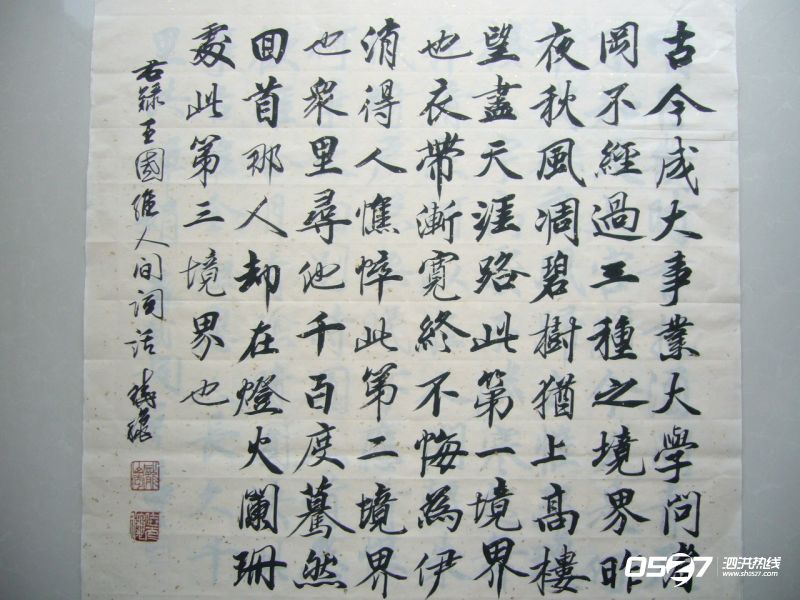 古今成大事業大學問者
岡不經過三種之境界昨
夜秋風凋碧樹猶上高樓
望盡天涯路此第一境界
也衣帶漸寬終不悔為伊
消得人憔悴此第二境界
也衆里尋他千百度驀然
回首那人却在燈火闌珊
處此第三境界也
右錄王國維人間詞話
0527 泗洪热线
www.sh0527.com